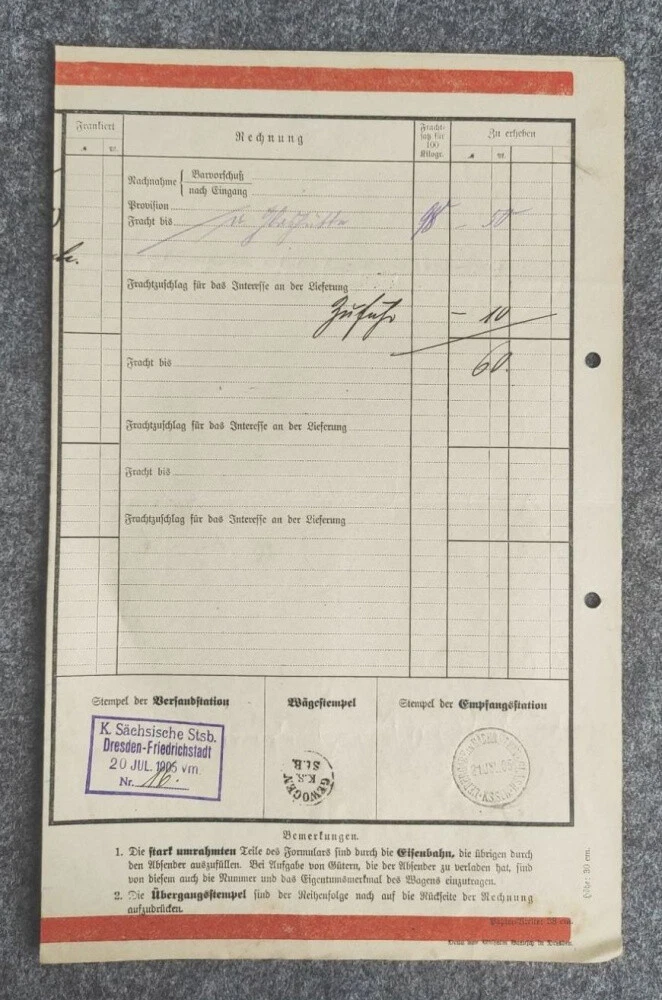 Frankiert
Rechnung
Frachtsatz für 100 Kilogr.
Zu erheben
Nachnahme { Barvorschuß
nach Eingang
Provision
Fracht bis
98 – 50
Frachtzuschlag für das Interesse an der Lieferung
Zufuhr – 10
Fracht bis
60.
Frachtzuschlag für das Interesse an der Lieferung
Fracht bis
Frachtzuschlag für das Interesse an der Lieferung
Stempel der Versandstation
Wägestempel
Stempel der Empfangsstation
K. Sächsische Stsb.
Dresden-Friedrichstadt
20 JUL. 1905 vm.
Nr. 16.
GEWOGEN
K.S.
St.B.
Bemerkungen.
1. Die stark umrahmten Teile des Formulars sind durch die Eisenbahn, die übrigen durch
den Absender auszufüllen. Bei Aufgabe von Gütern, die der Absender zu verladen hat, sind
von diesem auch die Nummer und das Eigentumsmerkmal des Wagens einzutragen.
2. Die Übergangsstempel sind der Reihenfolge nach auf die Rückseite der Rechnung
aufzudrücken.
Höhe: 30 cm.